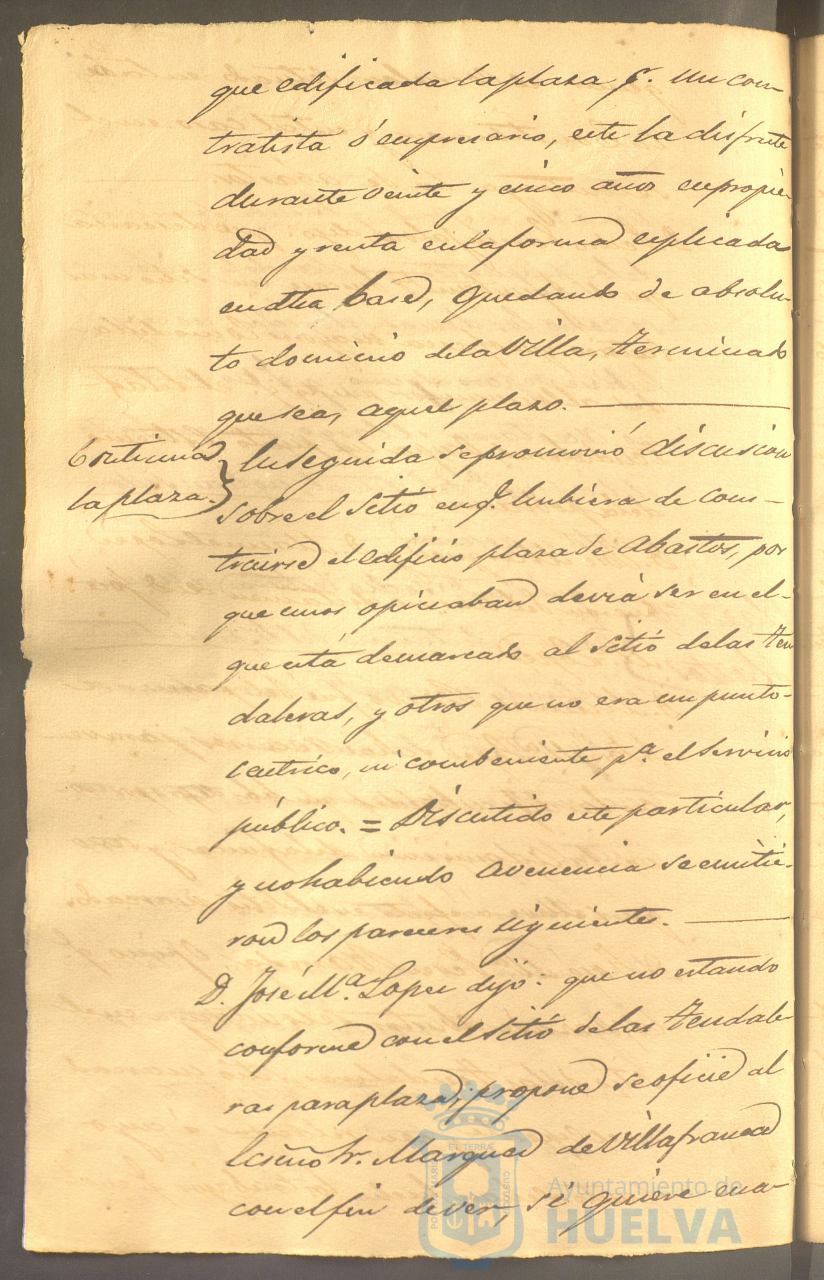 que edificada la plaza p.r un con-
tratista ó empresario, este la disfrute
durante veinte y cinco años en propie-
dad y renta en la forma esplicada
en dha base, quedando de absolu-
to dominio de la Villa, terminado
que sea, aquel plazo.
Continua
la plaza.
En seguida se promovió discusion
sobre el sitió en q.e hubiera de cons-
truirse el edificio plaza de Abastos, por
que unos opinaban deviá ser en el-
que está demarcado al sitió de las ten
daleras, y otros que no era un punto-
centrico, ni combeniente p.a el servicio
público. = Discutido este particular,
y no habiendo avenencia se emitie-
ron los pareceres siguientes.
D. José M.a Lopez dijo: que no estando
conforme con el sitió de las tendale-
ras para plaza, propone se oficie al
Escmo Sr. Marques de Villafranca
con el fin de ver, si quiere ena-
Ayuntamiento de
HUELVA